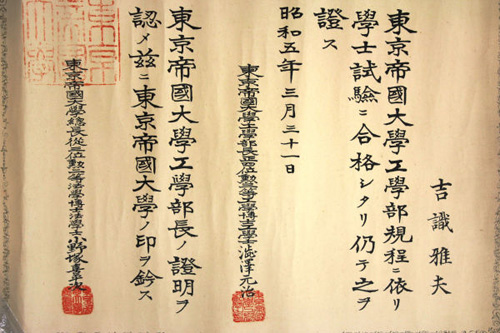 吉識雅夫
東京帝國大學工學部規程ニ依リ
學士試驗ニ合格シタリ仍テ之ヲ
證ス
昭和五年三月三十一日
東京帝國大學工學部長正四位勲三等工學博士工學士澁澤元治
東京帝國大學工學部長ノ證明ヲ
認メ茲ニ東京帝國大學ノ印ヲ鈐ス
東京帝國大學總長從三位勲二等法學博士法學士小野塚喜平次